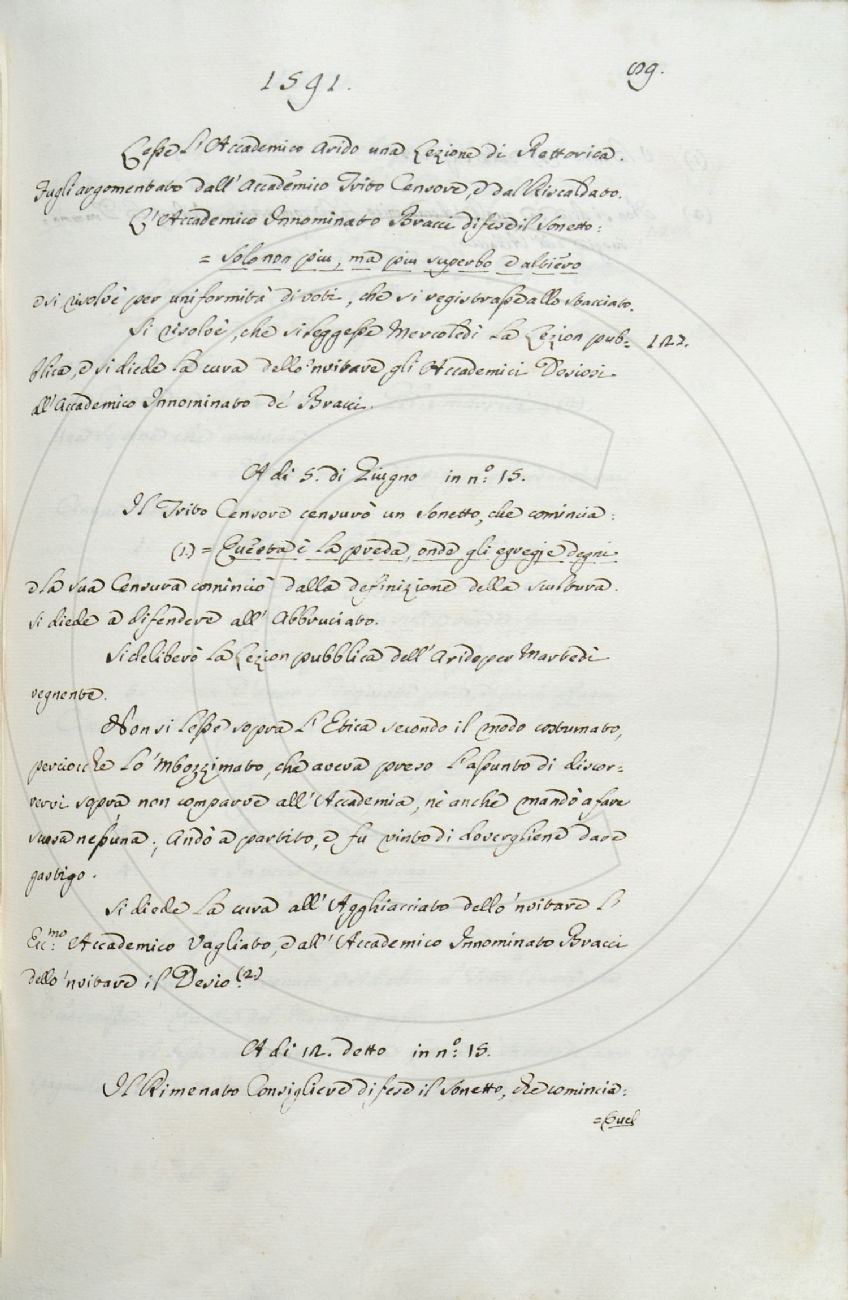 1591.
89.
Lesse l'Accademico Arido una Lezione di Rettorica.
Fugli argomentato dall'Accademico Trito Censore, e dal Riscaldato.
L'Accademico Innominato Bracci difese il Sonetto:
= Solo non piu, ma piu superbo e altiero
e si risolvè per uniformità di voti, che si registrasse allo stacciato.
Si risolvè, che si leggesse Mercoledì la Lezion pub=
127.
blica, e si diede la cura dello 'nvitare gli Accademici Desiosi
all'Accademico Innominato de' Bracci.
A dì 5. di Giugno in n.° 15.
Il Trito Censore censurò un Sonetto, che comincia:
(1.) = Questa è la preda, onde gli egregj degni
e la sua Censura cominciò dalla definizione della scultura.
si diede a difendere all'Abbruciato.
Si deliberò la Lezion pubblica dell'Arido per Martedì
vegnente.
Non si lesse sopra l'Etica secondo il modo costumato,
perciocche lo 'mbozzimato, che aveva preso l'assunto di discor=
rervi sopra non comparve all'Accademia, nè anche mandò a fare
scusa nessuna; Andò a partito, e fu vinto di dovergliene dare
gastigo.
Si diede la cura all'Agghiacciato dello 'nvitare l'
Ecc:mo Accademico Vagliato, e all'Accademico Innominato Bracci
dello 'nvitare il Desio.(2.)
A dì 12. detto in n.° 15.
Il Rimenato Consigliere difese il Sonetto, che comincia:
= Quel